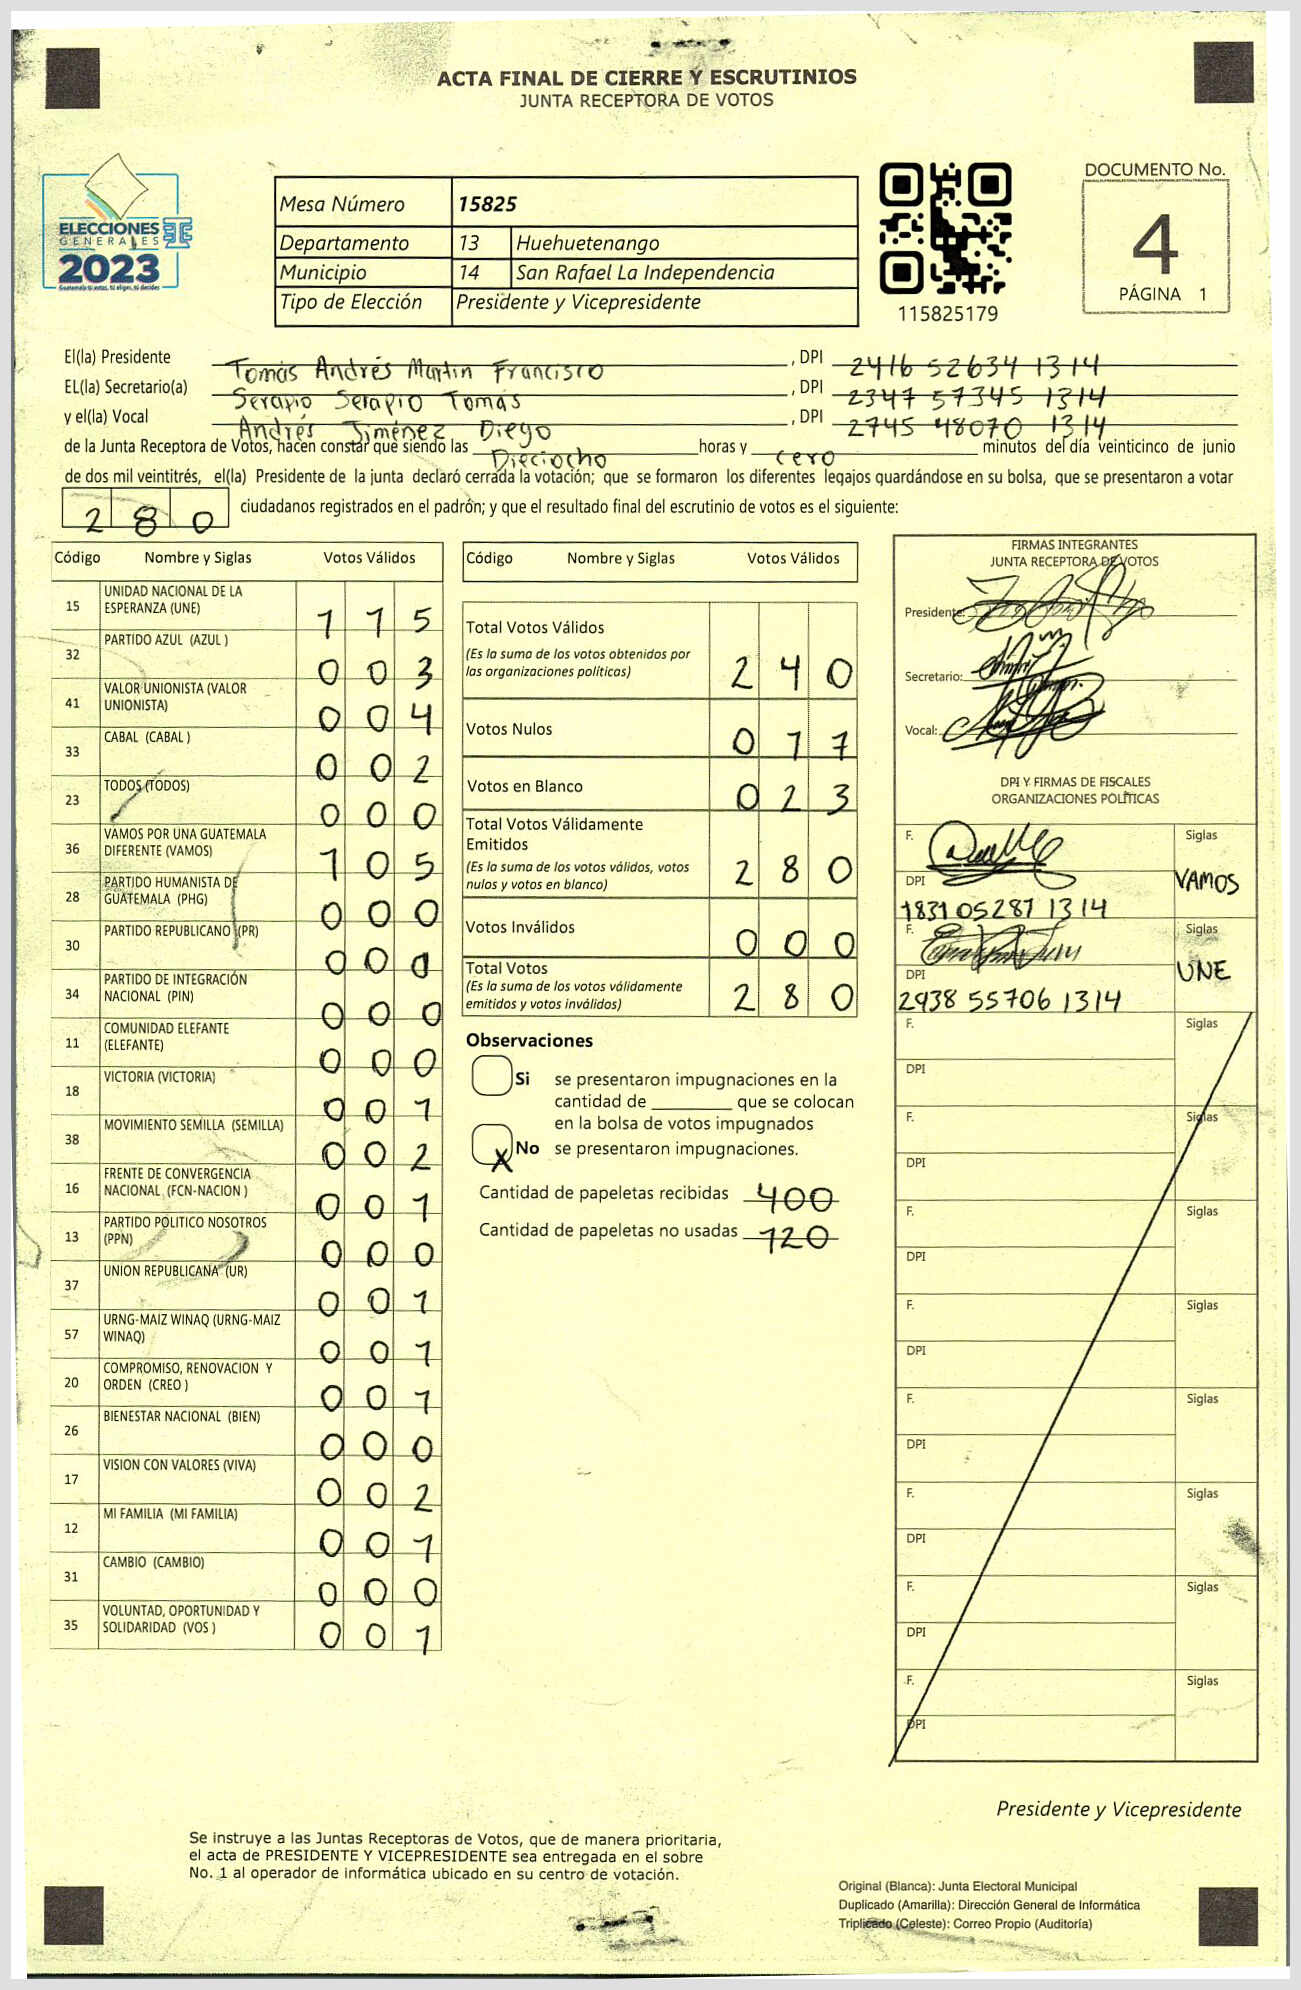 ACTA FINAL DE CIERRE Y ESCRUTINIOS
JUNTA RECEPTORA DE VOTOS
ELECCIONES
GENERALES
2023
Mesa Número 15825
Departamento 13 Huehuetenango
Municipio 14 San Rafael La Independencia
Tipo de Elección Presidente y Vicepresidente
115825179
DOCUMENTO No.
4
PÁGINA 1
El(la) Presidente Tomás Andrés Martin Francisco , DPI 2416 52634 1314
EL(la) Secretario(a) Serapio Serapio Tomás , DPI 2347 57345 1314
y el(la) Vocal Andrés Jiménez Diego , DPI 2745 48070 1314
de la Junta Receptora de Votos, hacen constar que siendo las Dieciocho horas y cero minutos del día veinticinco de junio
de dos mil veintitrés, el(la) Presidente de la junta declaró cerrada la votación; que se formaron los diferentes legajos guardándose en su bolsa, que se presentaron a votar
280 ciudadanos registrados en el padrón; y que el resultado final del escrutinio de votos es el siguiente:
Código Nombre y Siglas Votos Válidos
15 UNIDAD NACIONAL DE LA ESPERANZA (UNE) 115
32 PARTIDO AZUL (AZUL ) 003
41 VALOR UNIONISTA (VALOR UNIONISTA) 004
33 CABAL (CABAL ) 002
23 TODOS (TODOS) 000
36 VAMOS POR UNA GUATEMALA DIFERENTE (VAMOS) 105
28 PARTIDO HUMANISTA DE GUATEMALA (PHG) 000
30 PARTIDO REPUBLICANO (PR) 001
34 PARTIDO DE INTEGRACIÓN NACIONAL (PIN) 000
11 COMUNIDAD ELEFANTE (ELEFANTE) 000
18 VICTORIA (VICTORIA) 001
38 MOVIMIENTO SEMILLA (SEMILLA) 002
16 FRENTE DE CONVERGENCIA NACIONAL (FCN-NACION ) 001
13 PARTIDO POLITICO NOSOTROS (PPN) 000
37 UNION REPUBLICANA (UR) 001
57 URNG-MAIZ WINAQ (URNG-MAIZ WINAQ) 001
20 COMPROMISO, RENOVACION Y ORDEN (CREO ) 001
26 BIENESTAR NACIONAL (BIEN) 000
17 VISION CON VALORES (VIVA) 002
12 MI FAMILIA (MI FAMILIA) 001
31 CAMBIO (CAMBIO) 000
35 VOLUNTAD, OPORTUNIDAD Y SOLIDARIDAD (VOS ) 001
Código Nombre y Siglas Votos Válidos
Total Votos Válidos
(Es la suma de los votos obtenidos por
las organizaciones políticas) 240
Votos Nulos 017
Votos en Blanco 023
Total Votos Válidamente
Emitidos
(Es la suma de los votos válidos, votos
nulos y votos en blanco) 280
Votos Inválidos 000
Total Votos
(Es la suma de los votos válidamente
emitidos y votos inválidos) 280
Observaciones
Si se presentaron impugnaciones en la
cantidad de ________ que se colocan
en la bolsa de votos impugnados
X No se presentaron impugnaciones.
Cantidad de papeletas recibidas 400
Cantidad de papeletas no usadas 120
FIRMAS INTEGRANTES
JUNTA RECEPTORA DE VOTOS
Presidente:
Secretario:
Vocal:
DPI Y FIRMAS DE FISCALES
ORGANIZACIONES POLÍTICAS
F. Siglas
DPI VAMOS
1831 05287 1314
F. Siglas
DPI UNE
2938 55706 1314
F. Siglas
DPI
F. Siglas
DPI
F. Siglas
DPI
F. Siglas
DPI
F. Siglas
DPI
F. Siglas
DPI
F. Siglas
DPI
F. Siglas
DPI
Presidente y Vicepresidente
Se instruye a las Juntas Receptoras de Votos, que de manera prioritaria,
el acta de PRESIDENTE Y VICEPRESIDENTE sea entregada en el sobre
No. 1 al operador de informática ubicado en su centro de votación.
Original (Blanca): Junta Electoral Municipal
Duplicado (Amarilla): Dirección General de Informática
Triplicado (Celeste): Correo Propio (Auditoría)